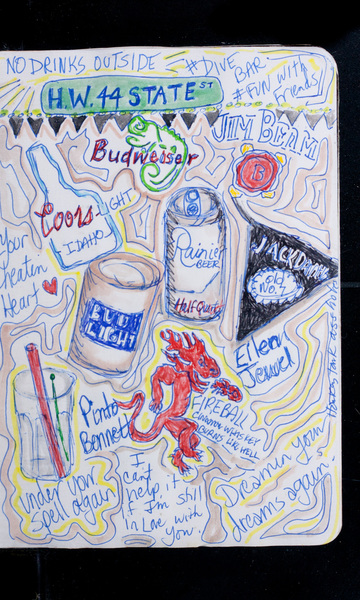 NO DRINKS OUTSIDE
#DIVE BAR
#FUN WITH
Friends
H.W. 44 STATE ST
JIM BEAM
Budweiser
B
Coors
LIGHT
IDAHO
Rainier
BEER
Half Quart
JACK DANIEL
old
No. 7
Your
Cheaten
Heart
BUD
LIGHT
Eilen
Jewel
Pinto
Bennett
FIREBALL
CINNAMON WHISKEY
BURNS LIKE WELL
Under your
spell again
I
can't
help, it
if I'm still
In Love with
you.
Dreamin your
dreams again.